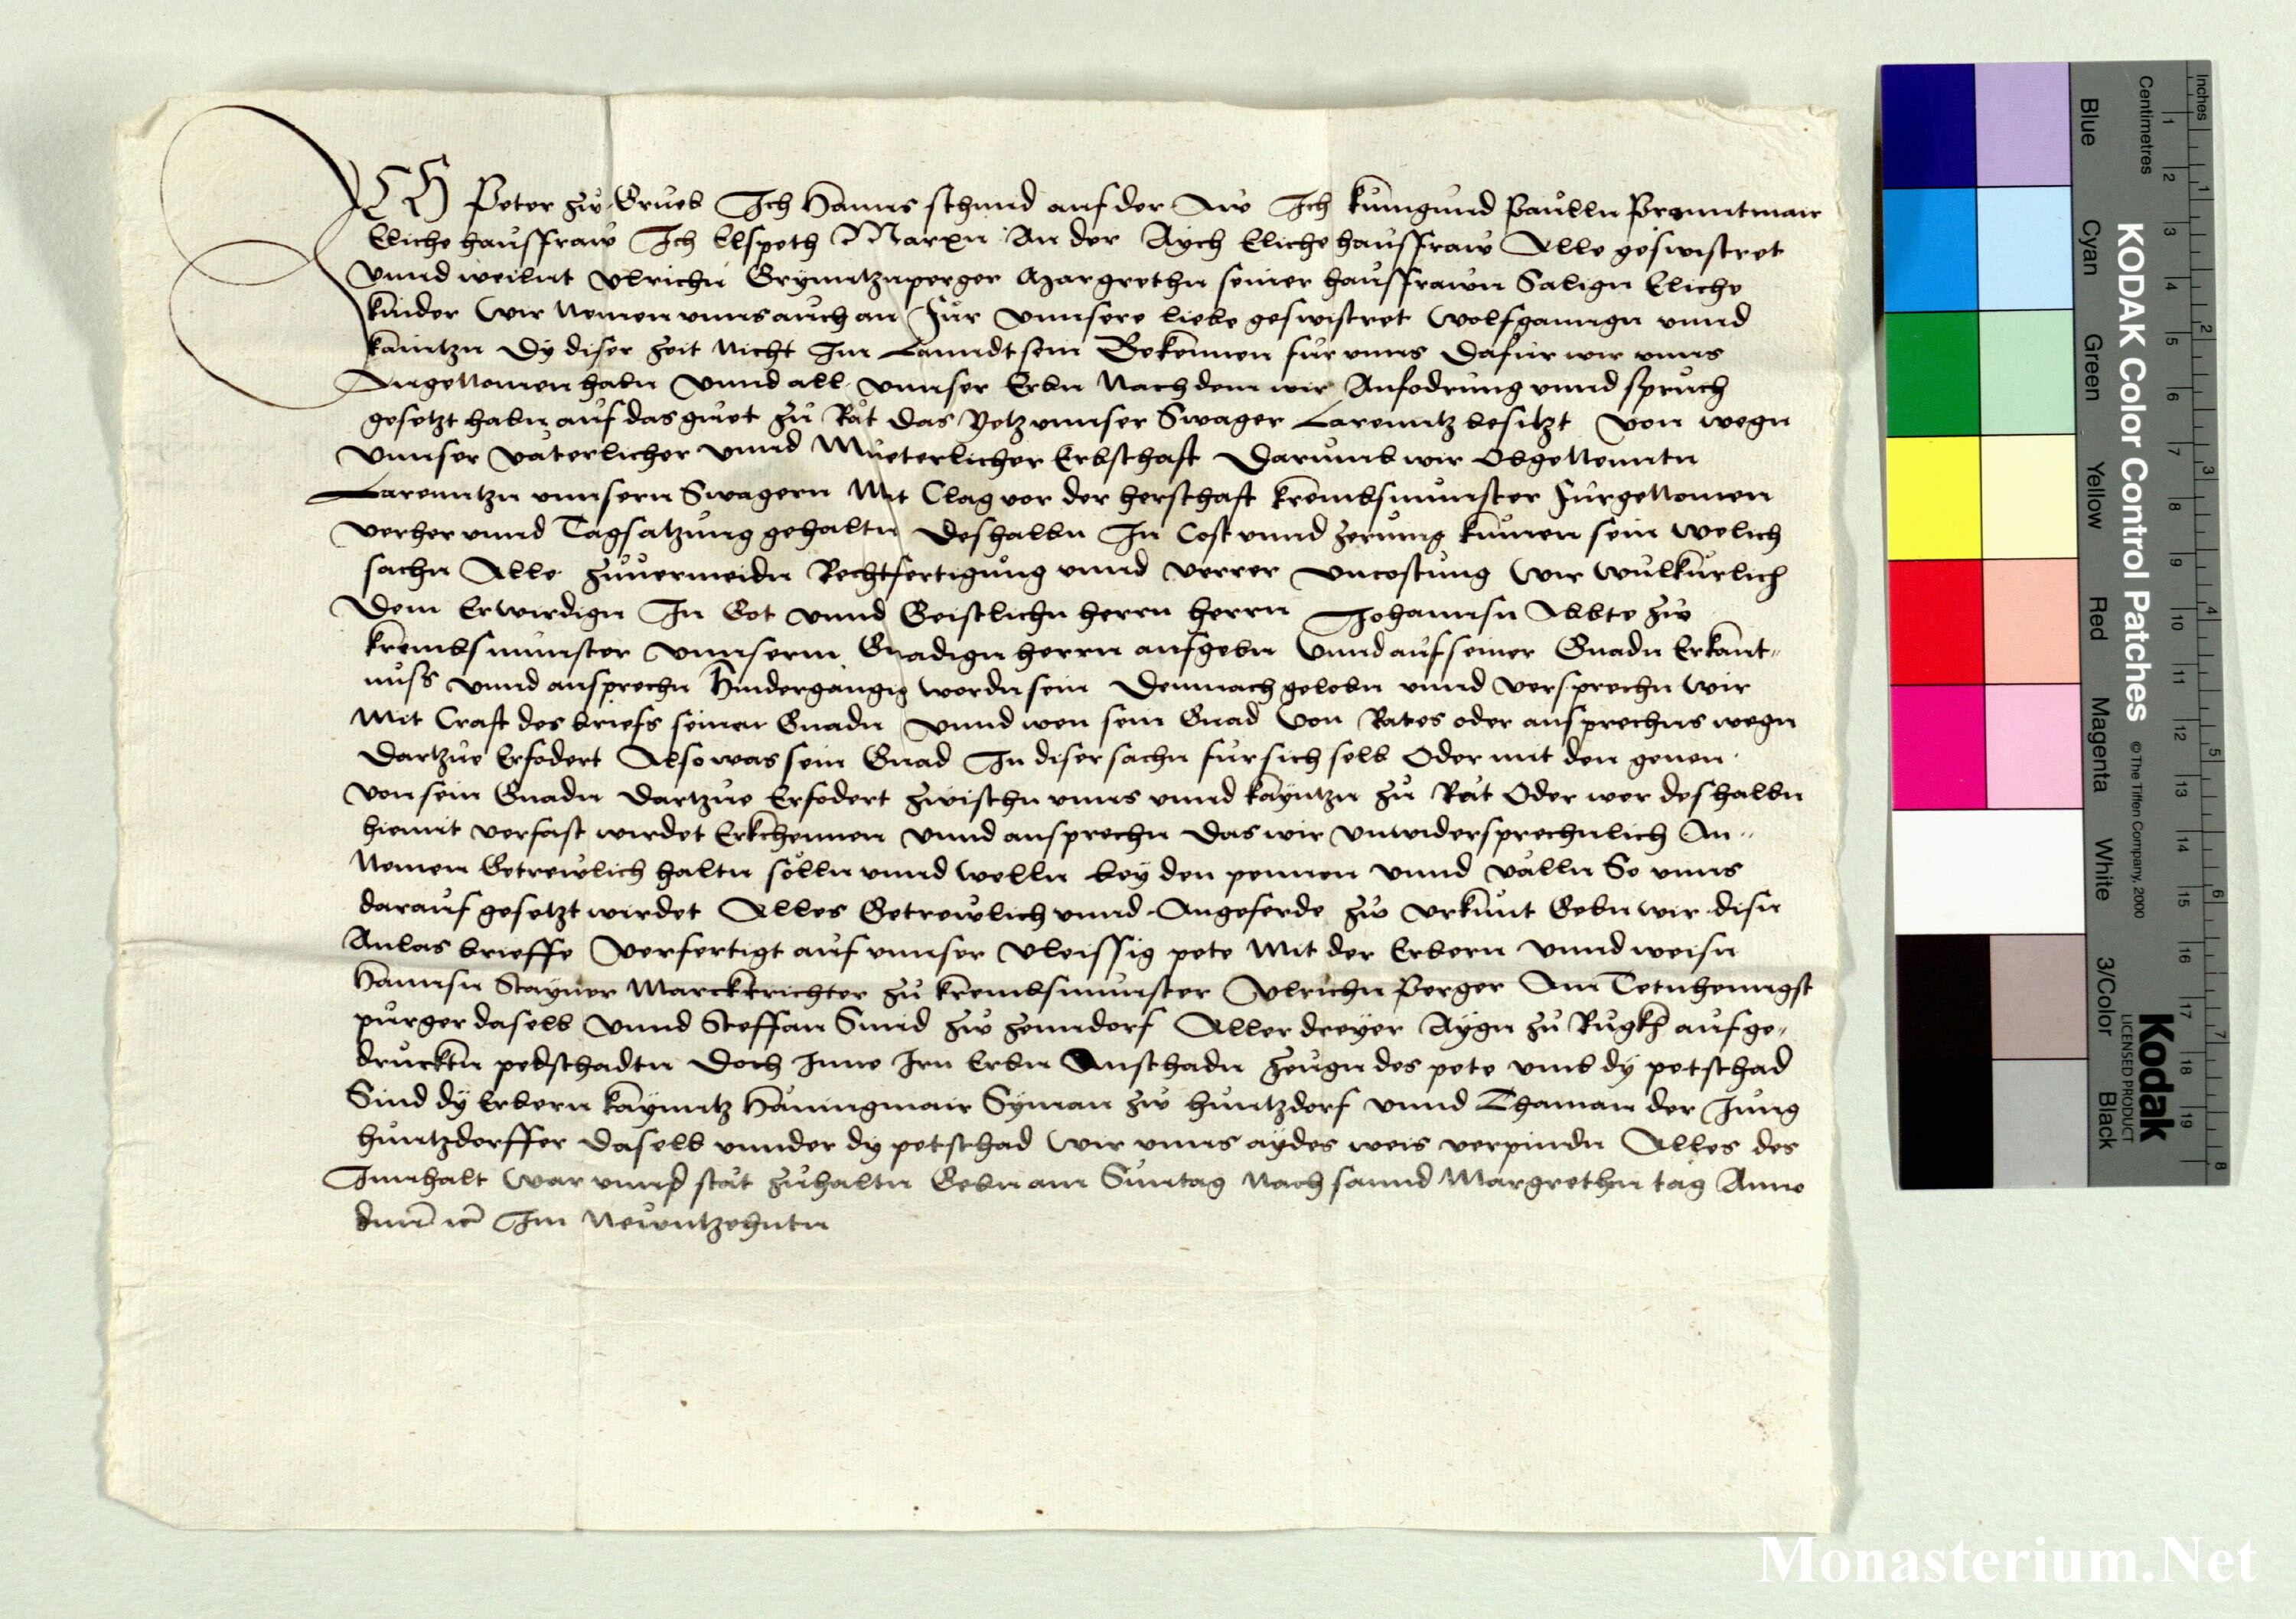 ICH Peter zw Grueb Ich Hanns schmid auf der Aw Ich kunigund Paulln Pranntmair
Eliche hausfraw Ich Elspeth Marxn An der Aych Eliche hausfraw Alle geswistret
vnnd weilnt vlrichn Grymtznperger Margrethn seiner hausfrawn Salign Eliche
kinder Wir Nemen vnns auch an Für vnnsere liebe geswistret Wolfganngn vnnd
kaintzn Dy diser Zeit Nicht Im Lanndt sein Bekennen für vnns Dafür wir vnns
AngeNomen habn Vnnd all vnnser Erbn Nach dem wir Anfodrung vnnd spruch
gesetzt habn auf das guet zu Rät das Yetz vnnser Swager Larenntz besitzt Von wegn
Vnnser väterlicher vnnd Müeterlicher Erbschaft Darumb wir ObgeNenntn
Larenntzn vnnsern Swagern Mit Clag vor der herschaft krembsmünster FürgeNomen
verher vnnd Tagsatzung gehaltn Deshalbn In Cost vnnd zerung kumen sein welich
sachn Alle zuuermeidn Rechtfertigung vnnd verrer Vncostung Wir wulkurlich
Dem Erwirdign In Got vnnd Geistlichn herrn herrn Johannsn Abbte zw
krembsmünster Vnnserm Gnadign herrn aufgebn Vnnd auf seiner Gnadn Erkant-
nuss vnnd ansprechn Hindergangig wordn sein Demnach gelobn vnnd versprechn Wir
Mit Craft des briefs seinen Gnadn Vnnd wen sein Gnad Von Rates oder ansprechns wegn
Dartzue Erfodert Also was sein Gnad In diser sachn für sich selb Oder mit den genen
von sein Gnadn Dartzue Erfodert zwischn vnns vnnd kayntzn zu Rät Oder wer deshalbn
hiemit verfast wirdet Erkhennen Vnnd ansprechn Das wir vnwidersprechnlich An-
Nemen Getrewlich haltn sölln vnnd welln bey den pennen Vnnd välln So vnns
darauf gesetzt wirdet Alles Getrewlich vnnd Angeferde zw vrkunt Gebn wir disn
Anlas brieffe Verfertigt auf vnnser vleissig pete Mit der Erbern Vnnd weisn
Hannsn Stayner Marcktrichter zu krembsmünster Vlrichn Perger Am Tetnhenngst
purger daselb Vnnd Steffan Smid zw zenndorf Aller dreyer Aygn zu Rugkh aufge-
drucktn petschadtn Doch Inne Irn Erbn Anschadn Zeugn des pete vmb dy petschad
Sind dy Erbern kaymtz Häningmair Syman zw huntzdorf vnnd Thaman der Jung
huntzdorffer Daselb vnnder dy petschad Wir vnns aydes weis verpindn Alles des
Innhalt War vnnd stät zuhaltn Gebn am Suntag Nach sannd Margrethn tag Anno
dmi rc Im Newntzehntn
KODAK Color Control Patches
© The Tiffen Company, 2000
Kodak
LICENSED PRODUCT
Inches
Centimetres
Blue
Cyan
Green
Yellow
Red
Magenta
White
3/Color
Black
Monasterium.Net